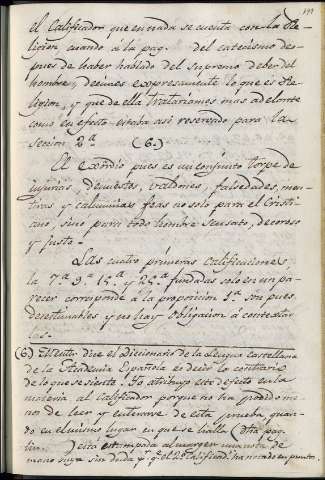 el Calificador que en nada se cuenta con la Re-
ligion cuando á la pag. del catecismo des-
pues de haber hablado del supremo deber del
hombre, decimos expresamente lo que es Re-
ligion, y que de ella tratariamos mas adelante
como en efecto estaba asi reservado para la
seccion 2.ª (6.)
El exôrdio pues es un conjunto torpe de
injurias, denuestos, baldones, falsedades, men-
tiras y calumnias feas no solo para el Cristi
ano, sino para todo hombre sensato, decoroso
y justo.
Las cuatro primeras calificaciones
la 7.ª 9.ª 15.ª y 28.ª fundadas solo en un pa-
recer corresponde á la proposicion 1.ª son pues
desestimables y no hay obligacion á contextar
las.
(6) Mentir dice el Diccionario de la Lengua Castellana
de la Academia Española es decir lo contrario
de lo que se siente. Yo atribuyo este defecto en la
materia al Calificador porque no ha podido me-
nos de leer y enterarse de esta prueba, quan-
do en el mismo lugar en que se halla (dha pag.
) está estampada al margen una nota de
mano suya sin duda y q.e el 2.º Calificad.r ha notado en punto